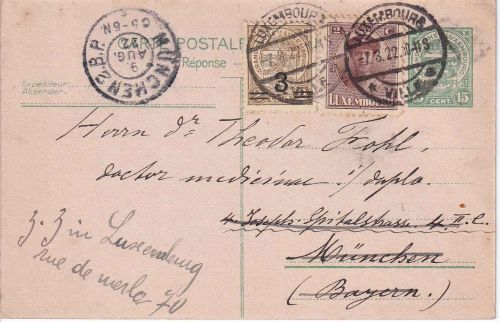 CARTE POSTALE
Réponse
Expéditeur:
Absender:
MÜNCHEN 2 B.P.
9 AUG. 22
LUXEMBOURG
3
LUXEMBOURG
LUXEMBOURG
VILLE
15 CENT. 15
Herrn dr Theodor
doctor medicinae
4 Josephs-Spitalstrasse 4 II. C.
München
(Bayern.)
z. Z in Luxemburg
rue de merle 70